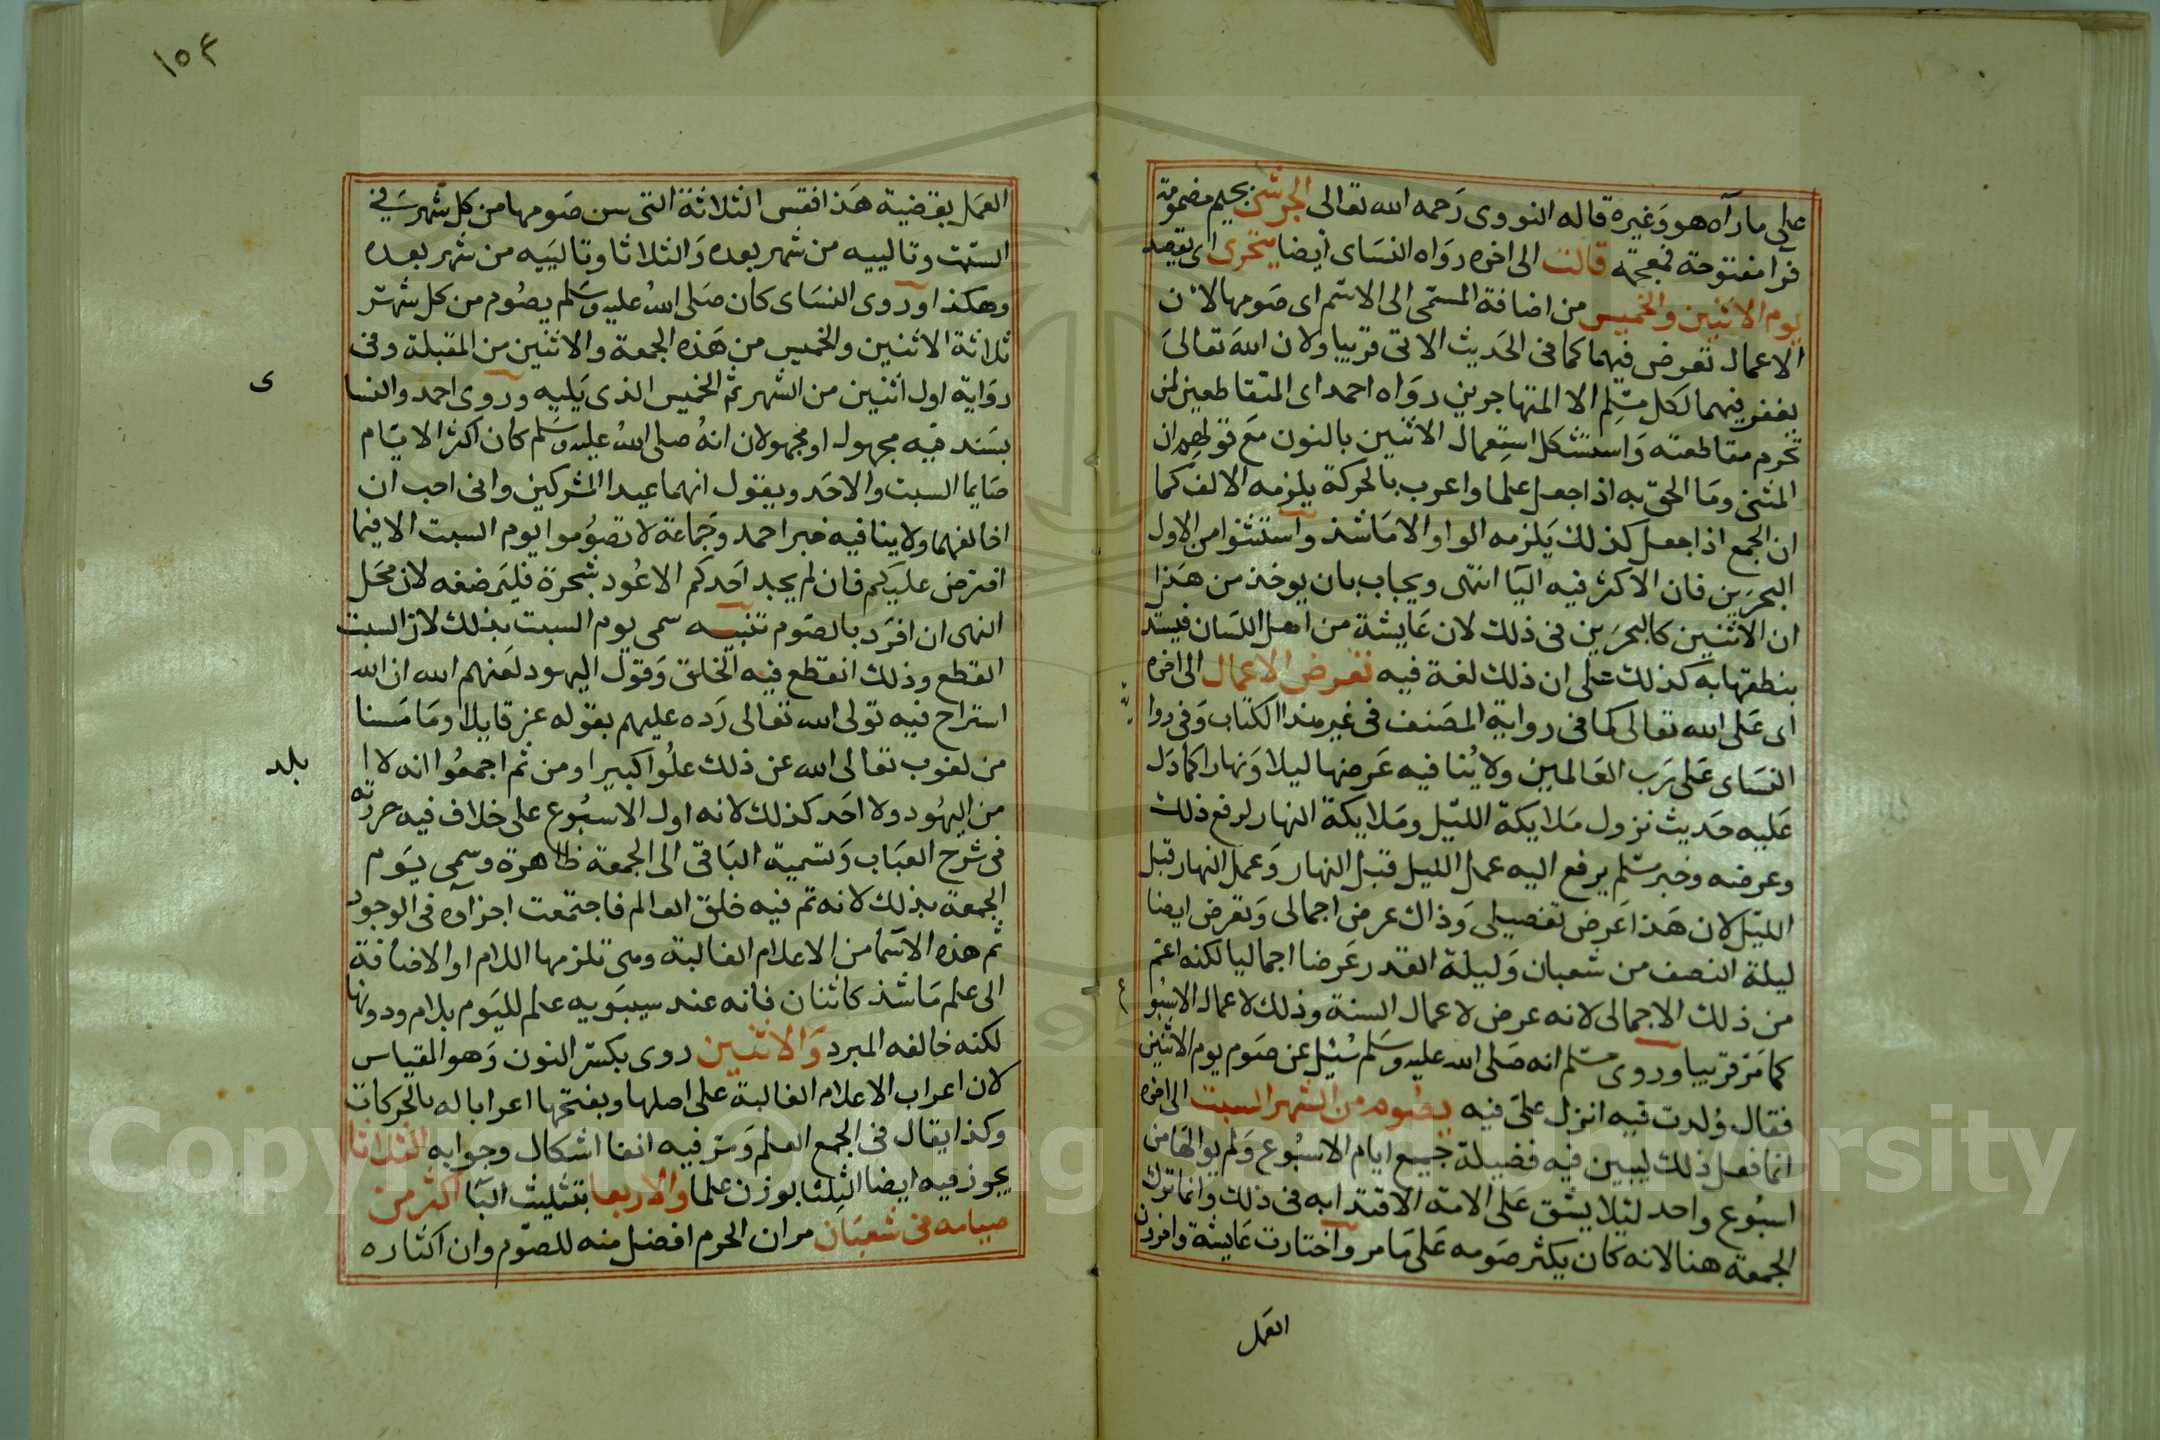 على ما رآه هو وغيره قاله النووى رَحمه الله تعالى الجرشى بجيم مضمومة
فرا مفتوحة فمعجمة قالت الى اخره روَاه النسَاى أيضا يتحرى اى يقصد
يوم الاثنين والخميس من اضافة المسمّى الى الاسم اى صَومها لان
الاعمال تعرض فيهما كما فى الحَديث الاتى قريبا ولان الله تعالىَ
يغفر فيهما لكل مسْلِم الا المتهاجرين روَاه احمد اى المتقاطعين لمن
تحرم مقاطعته وَاستشكل استعمال الاثنين بالنون مَع قولهم ان
المثنى ومَا الحق به اذا جعل علما واعرب بالحركة يلزمه الالف كما
ان الجمع اذا جعل كذلك يَلزمه الواو الا مَا شذ واستثنوا من الاول
البحرَين فان الاكثر فيه اليَا انتهى ويجاب بان يوخذ من هَذا
ان الاثنين كالبحرَين فى ذلك لان عَايشة من اهل اللسَان فيستدل
بنطقها به كذلك على ان ذلك لغة فيه تعرض الاعمال الى اخره
اى عَلى الله تعالى كما فى رواية المصَنف فى غير هذا الكتاب وَفى روا
النسَاى عَلى رَب العَالمين ولا يُنافيه عَرضها ليلا وَنهارا كما دَل
عَليه حَديث نزول مَلايكة الليْل ومَلايكة النهار لرفع ذلك
وعرضه وخبر مسْلم يرفع اليه عمل الليل قبْل النهار وَعمل النهار قبل
الليْل لان هَذا عَرض تفصيلى وَذاك عرض اجمالى وَتعرض ايضا
ليلة النصف من شعبان وَليلة القدر عَرضا اجماليا لكنه اعم
من ذلك الاجمالى لانه عرض لاعمال السنة وذلك لاعمال الاسبو
كما مَر قريبا وروى مسْلم انه صَلى الله عليه وسَلم سُئل عن صَوم يوم الاثنين
فقال وُلدت فيه انزل علىّ فيه يصُوم من الشهر السبت الى اخره
انما فعل ذلك ليبين فيه فضيلة جميع ايام الاسبُوع وَلم يوالها من
اسبُوع واحد ليلا يشق عَلى الامة الاقتدا به فى ذلك وانما ترك
الجمعة هنا لانه كان يكثر صَومه عَلى مَا مر واختارت عَايشة واخرون
العمل
١٥٤
العمَل بقضية هَذا فقس الثلاثة التى سن صَومها من كل شهر سَ فى
السبت وتالييه من شهر بعده وَالثلاثا وتالييه من شهر بعده
وهكذا وروى النسَاى كان صَلى اللهُ عليه وسَلم يصُوم من كل شهر
ثلاثة الاثنين والخميس من هَذه الجمعة والاثنين من المقبلة وفى
روَاية اول اثنين من الشهر ثم الخميس الذى يَليه وروى احمد والنسا
ى
بسَند فيه مجهول او مجهولان انهُ صلى اللهُ عليه وسَلم كان اكثر الايّام
صَايما السبت والاحَد ويقول انهما عيد المشركين وانى احب ان
اخالفهما ولا ينافيه خبر احمد وجَماعة لا تصُوموا يوم السبت الا فيما
افترض عليكم فان لم يجد احَدكم الا عُود شجرة فليَمضغه لان محَل
النهى ان افرَد بالصَوم تنبيه سمى يوم السبت بذلك لان السبت
القطع وذلك انقطع فيه الخلق وَقول اليهود لعَنهم الله ان الله
استراح فيه تولى الله تعالى رَده عليهم بقوله عز قايلا ومَا مَسنا
من لغوب تعالى الله عن ذلك علُوا كبيرا ومن ثم اجمعُوا انه لا ا
بلد
من اليهُود ولا احَد كذلك لانه اول الاسبُوع على خلاف فيه حررته
فى شرح العبَاب وَتسمية البَاقى الى الجمعة ظاهرة وسمى يَوم
الجمعة بذلك لانه تم فيه خلق العالم فاجتمعت اجزاوه فى الوجود
ثم هذه الاسَما من الاعلام الغالبة ومتى تلزمها اللام او الاضافة
الى علم مَا شذ كاثنان فانه عند سيبَويه علم لليَوم بلام ودونها
لكنه خالفه المبرد وَالاثنين روى بكسر النون وَهو القياس
لان اعراب الاعلام الغالبة على اصلها وبفتحها اعرابا له بالحركات
وكذا يقال فى الجمع العلم وَمَر فيه انفا اشكال وجوابه الثلاثا
يجوز فيه ايضا الثلثا بوزن علما والاربعا بتثليث البَا اكثر من
صيامه فى شعبَان مر ان المحرم افضل منه للصوم وان اكثاره
Copyright © King Saud University